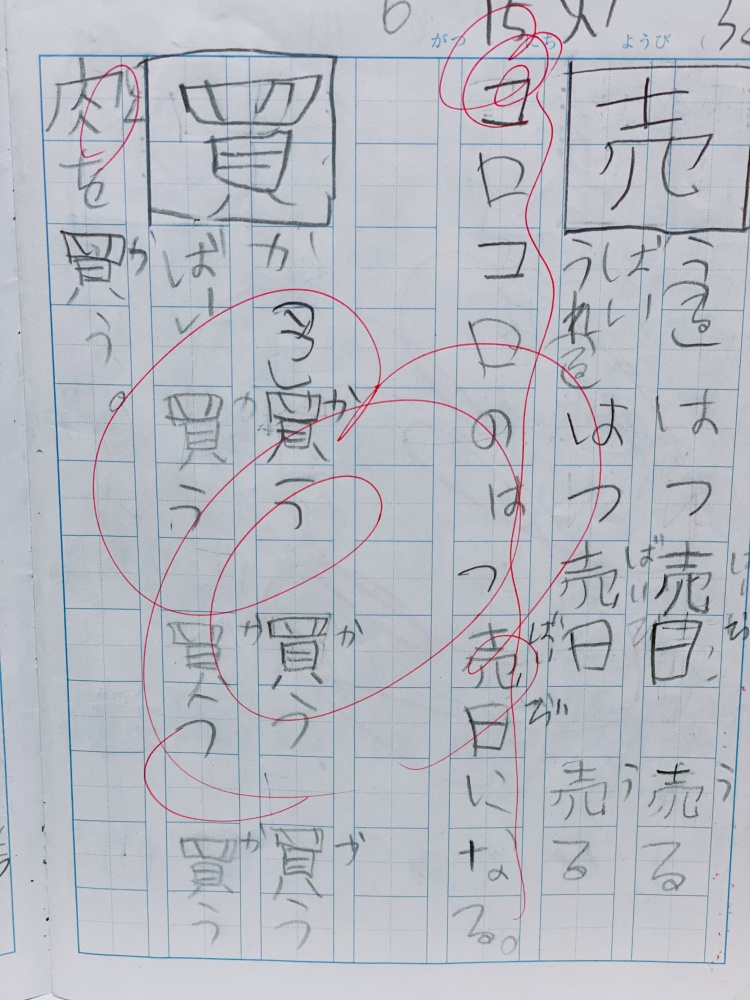 6がつ15にち 火ようび（
売
うる はつ売日 売る
ばい
うれる はつ売日 売る
コロコロのはつ売日になる。
ばい び
買
か 買う 買う 買う
ばい 買う 買う 買う
肉を買う。